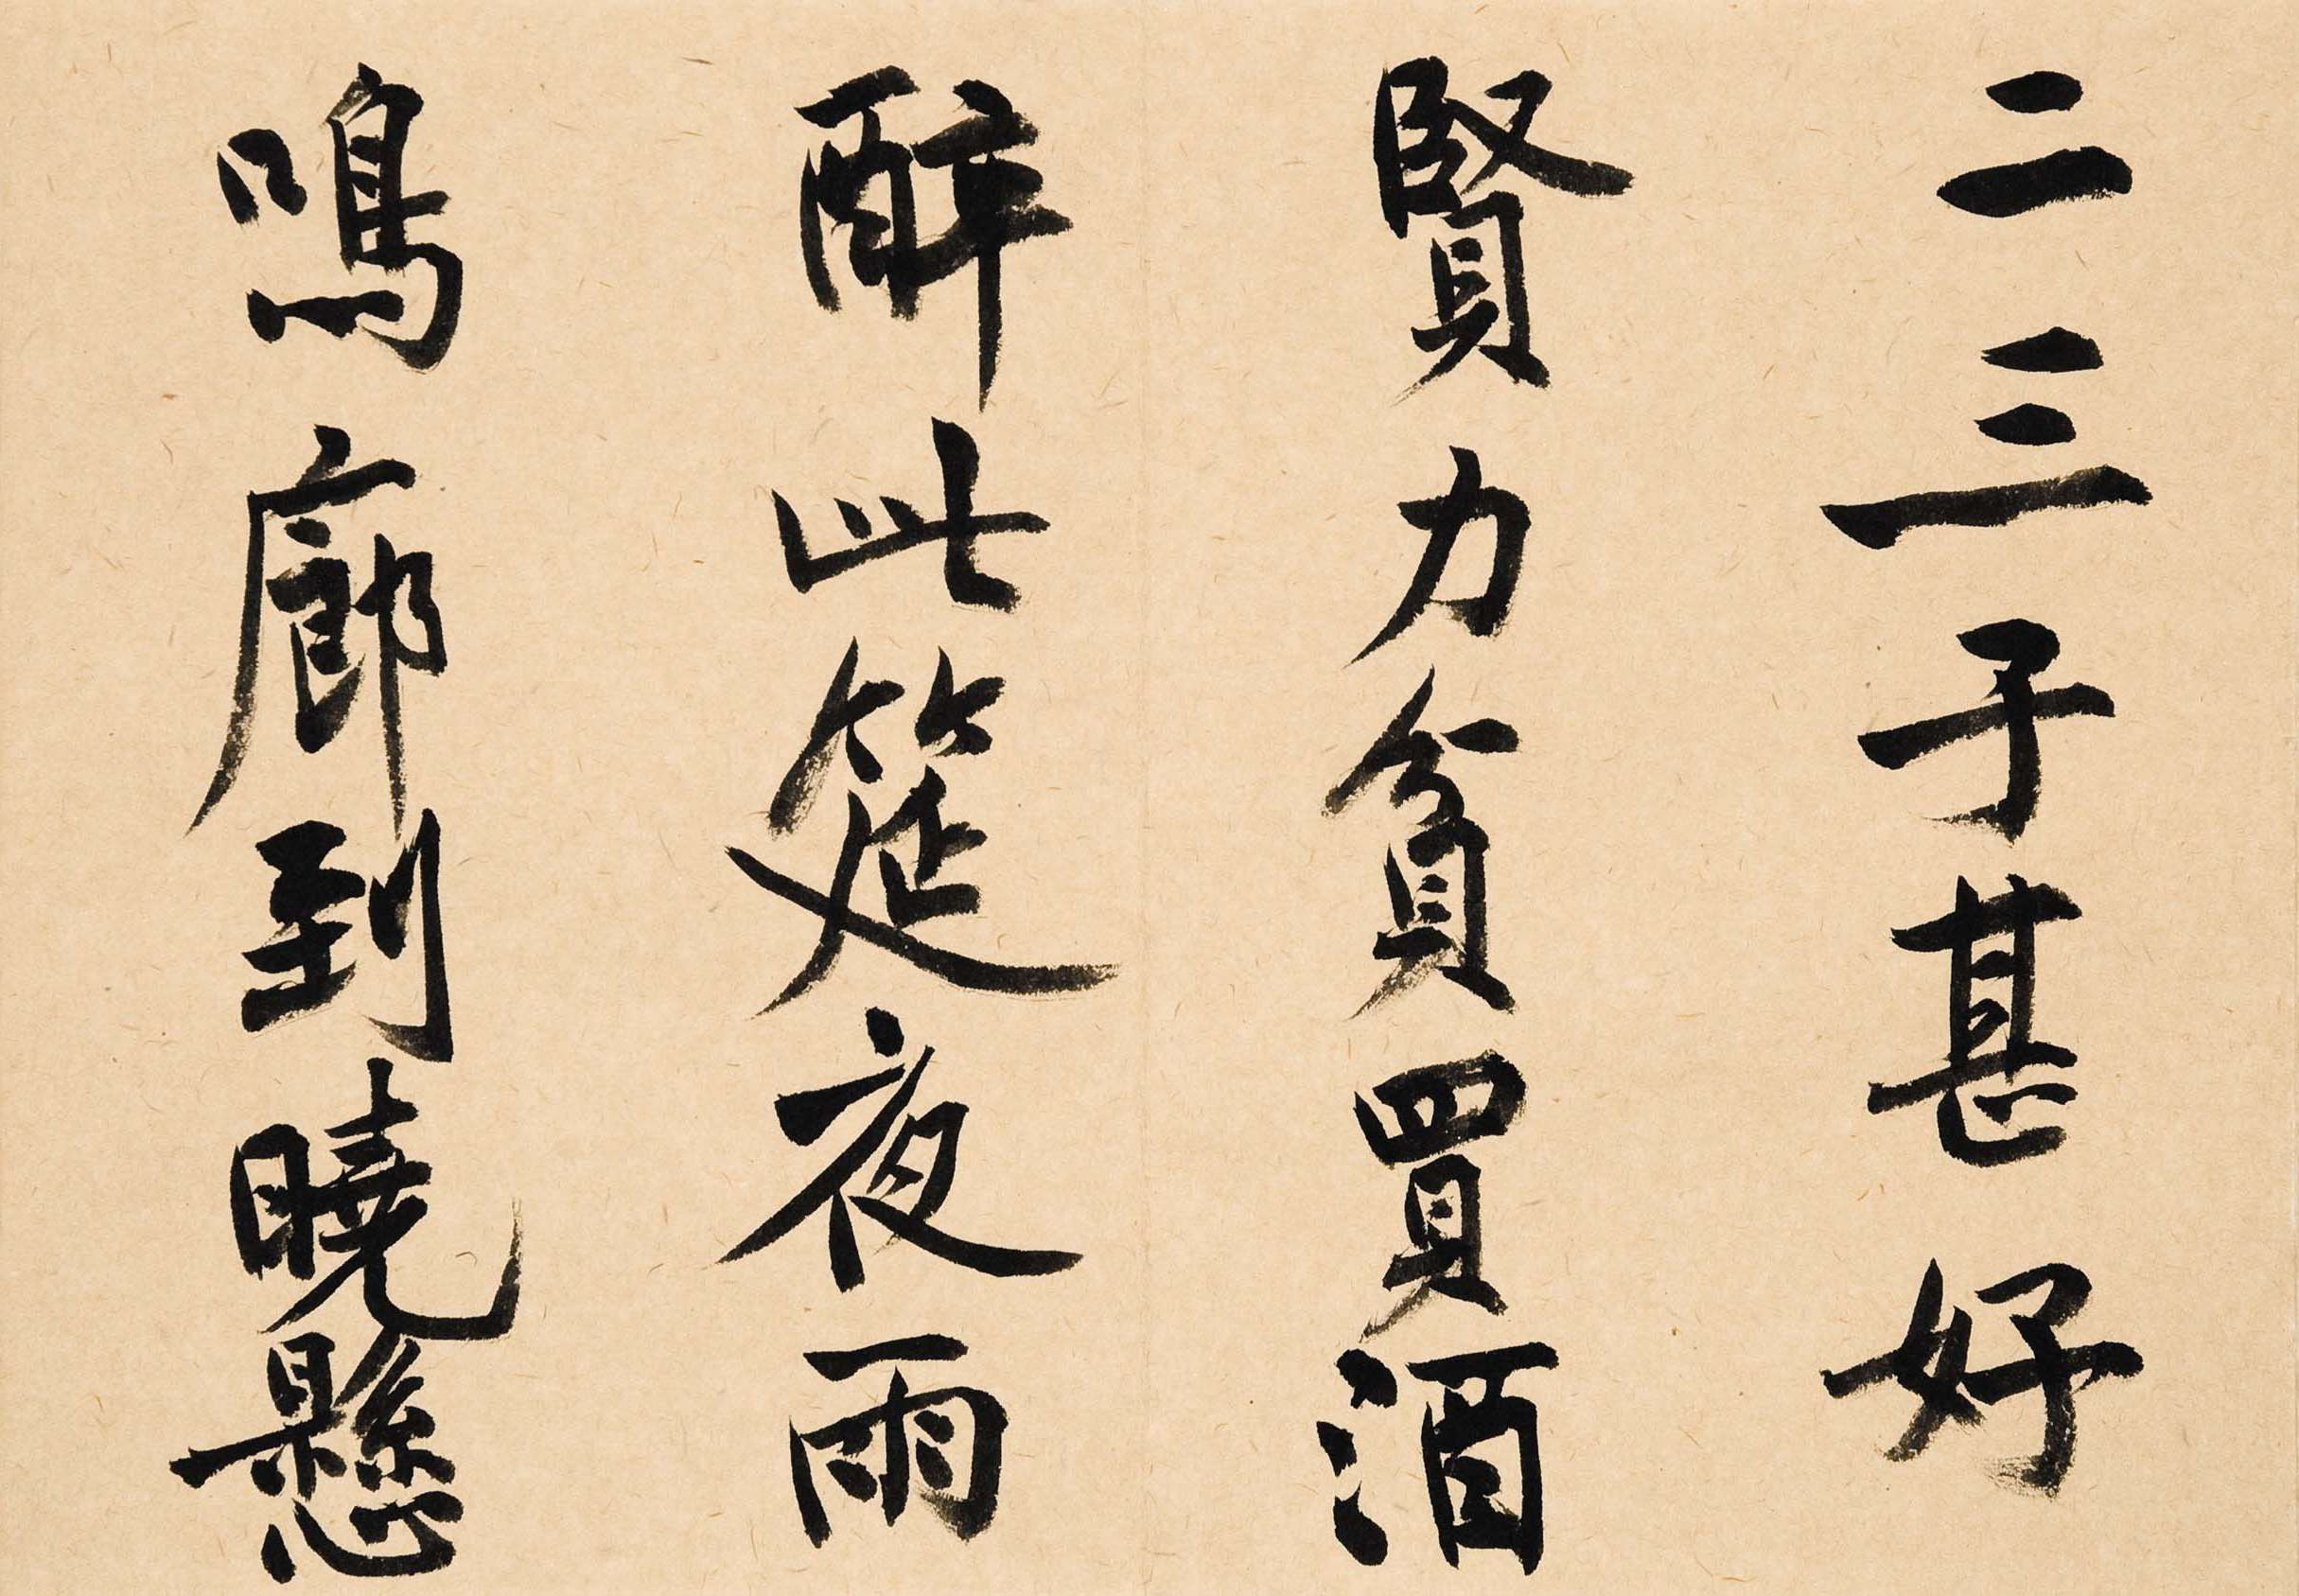 二三子甚好
賢力貧買酒
醉此筵夜雨
鳴廊到曉懸